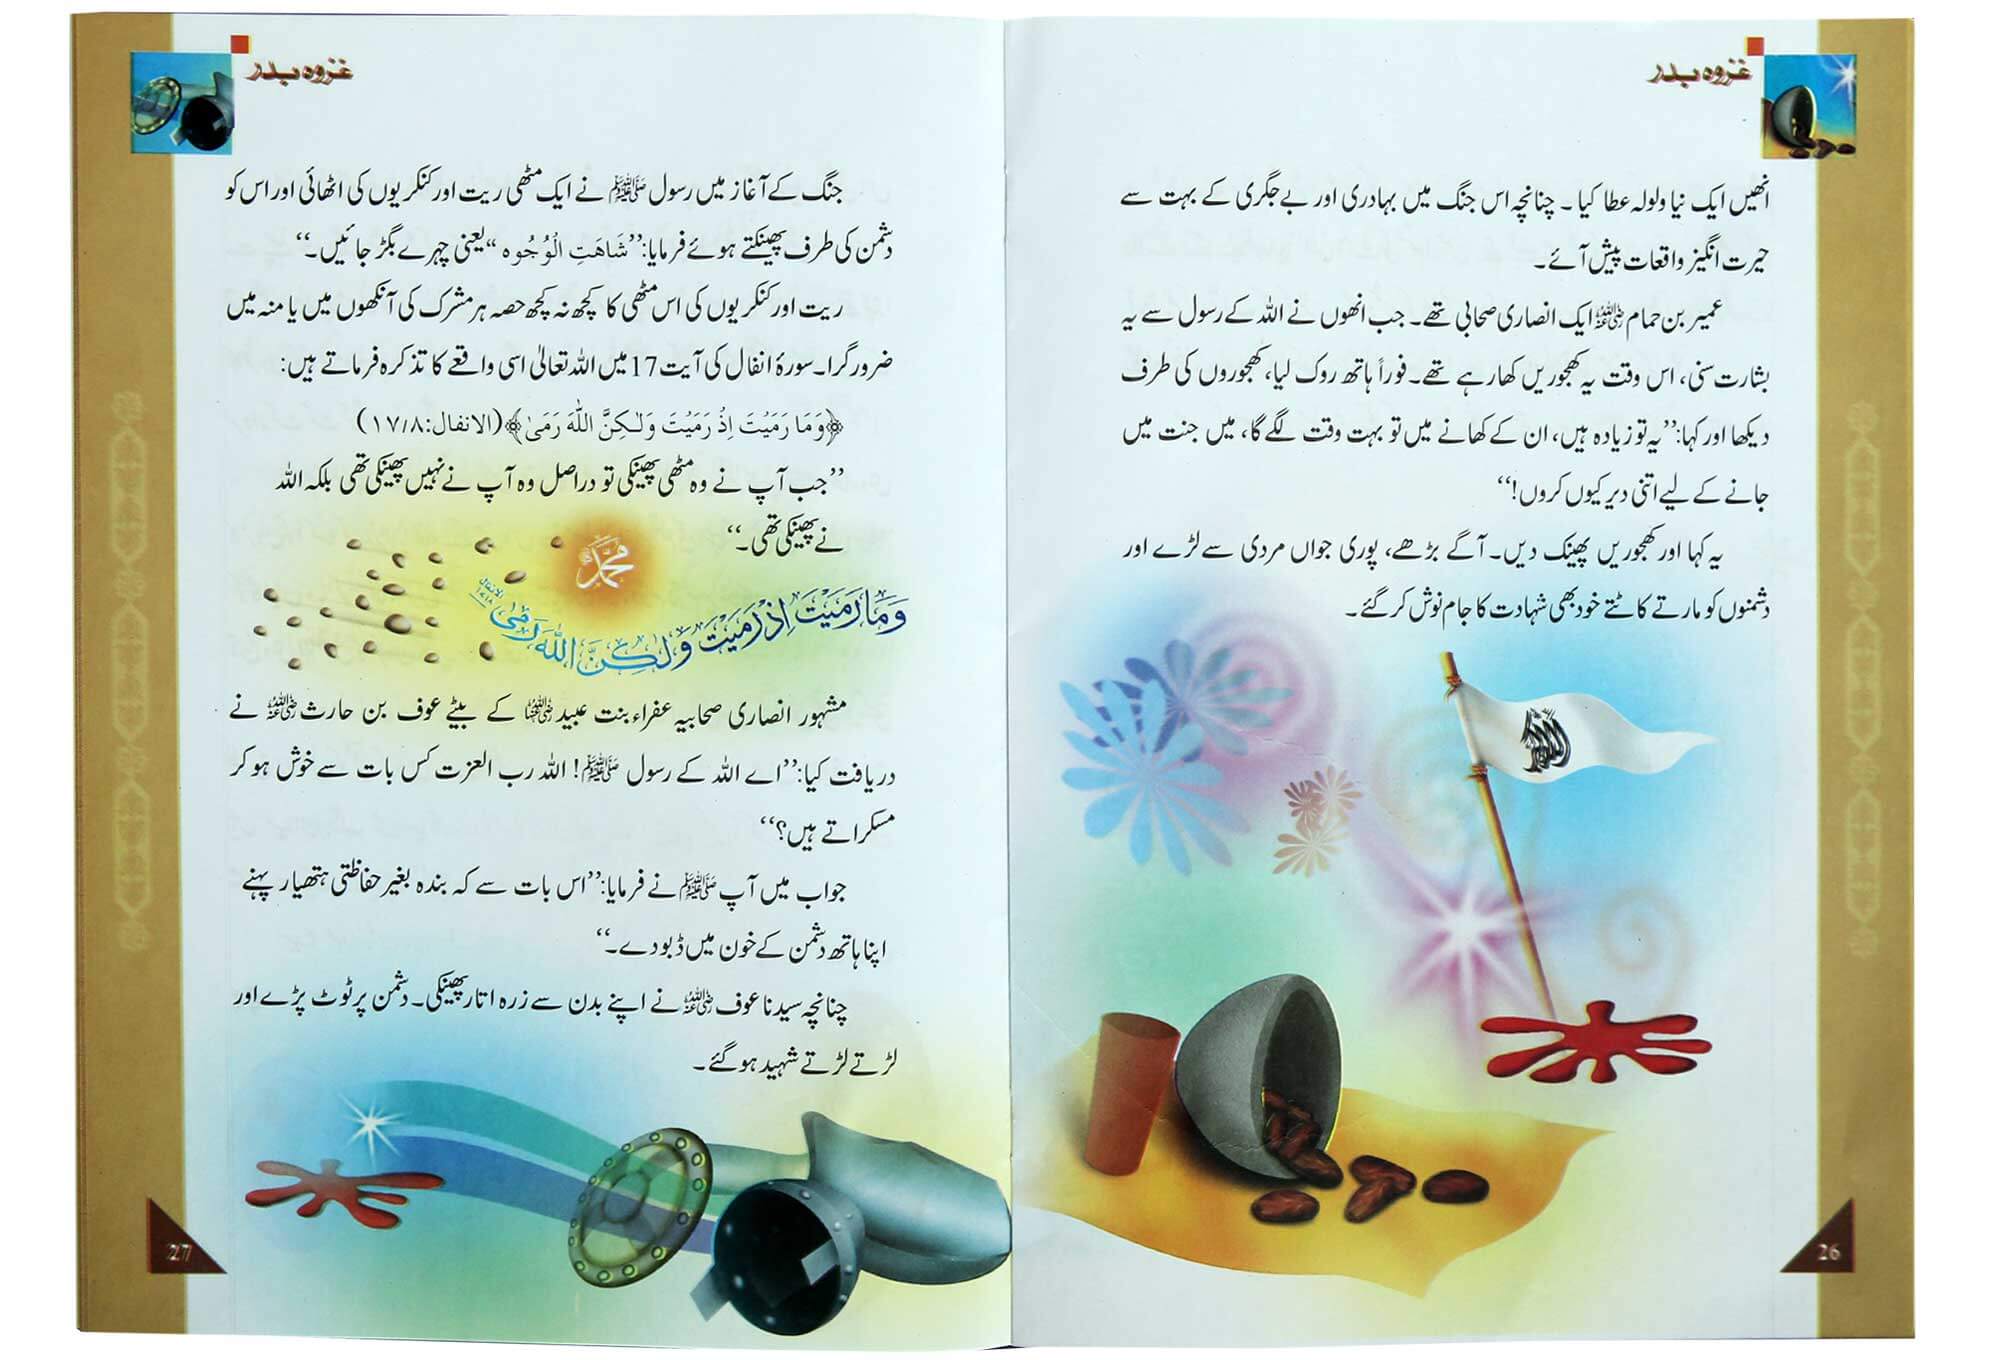 غزوہ بدر
انھیں ایک نیا ولولہ عطا کیا ۔ چنانچہ اس جنگ میں بہادری اور بے جگری کے بہت سے
حیرت انگیز واقعات پیش آئے۔
عمیر بن حمام رضی اللہ عنہ ایک انصاری صحابی تھے۔ جب انھوں نے اللہ کے رسول سے یہ
بشارت سنی، اس وقت یہ کھجوریں کھا رہے تھے۔ فوراً ہاتھ روک لیا، کھجوروں کی طرف
دیکھا اور کہا:’’یہ تو زیادہ ہیں، ان کے کھانے میں تو بہت وقت لگے گا، میں جنت میں
جانے کے لیے اتنی دیر کیوں کروں!‘‘
یہ کہا اور کھجوریں پھینک دیں۔ آگے بڑھے، پوری جواں مردی سے لڑے اور
دشمنوں کو مارتے کاٹتے خود بھی شہادت کا جام نوش کر گئے۔
26
غزوہ بدر
جنگ کے آغاز میں رسول ﷺ نے ایک مٹھی ریت اور کنکریوں کی اٹھائی اور اس کو
دشمن کی طرف پھینکتے ہوئے فرمایا:’’شَاهَتِ الْوُجُوه‘‘ یعنی چہرے بگڑ جائیں۔‘‘
ریت اور کنکریوں کی اس مٹھی کا کچھ نہ کچھ حصہ ہر مشرک کی آنکھوں میں یا منہ میں
ضرور گرا۔ سورۂ انفال کی آیت 17 میں اللہ تعالیٰ اسی واقعے کا تذکرہ فرماتے ہیں:
﴿وَمَا رَمَيْتَ اِذْ رَمَيْتَ وَلٰكِنَّ اللّٰهَ رَمَىٰ﴾(الانفال:۱۷/۸)
’’جب آپ نے وہ مٹھی پھینکی تو دراصل وہ آپ نے نہیں پھینکی تھی بلکہ اللہ
نے پھینکی تھی۔‘‘
محمد
وَمَا رَمَيْتَ اِذْ رَمَيْتَ وَلٰكِنَّ اللّٰهَ رَمٰى
الانفال
مشہور انصاری صحابیہ عفراء بنت عبید رضی اللہ عنہا کے بیٹے عوف بن حارث رضی اللہ عنہ نے
دریافت کیا:’’اے اللہ کے رسول ﷺ! اللہ رب العزت کس بات سے خوش ہو کر
مسکراتے ہیں؟‘‘
جواب میں آپ ﷺ نے فرمایا:’’اس بات سے کہ بندہ بغیر حفاظتی ہتھیار پہنے
اپنا ہاتھ دشمن کے خون میں ڈبو دے۔‘‘
چنانچہ سیدنا عوف رضی اللہ عنہ نے اپنے بدن سے زرہ اتار پھینکی۔ دشمن پر ٹوٹ پڑے اور
لڑتے لڑتے شہید ہو گئے۔
27